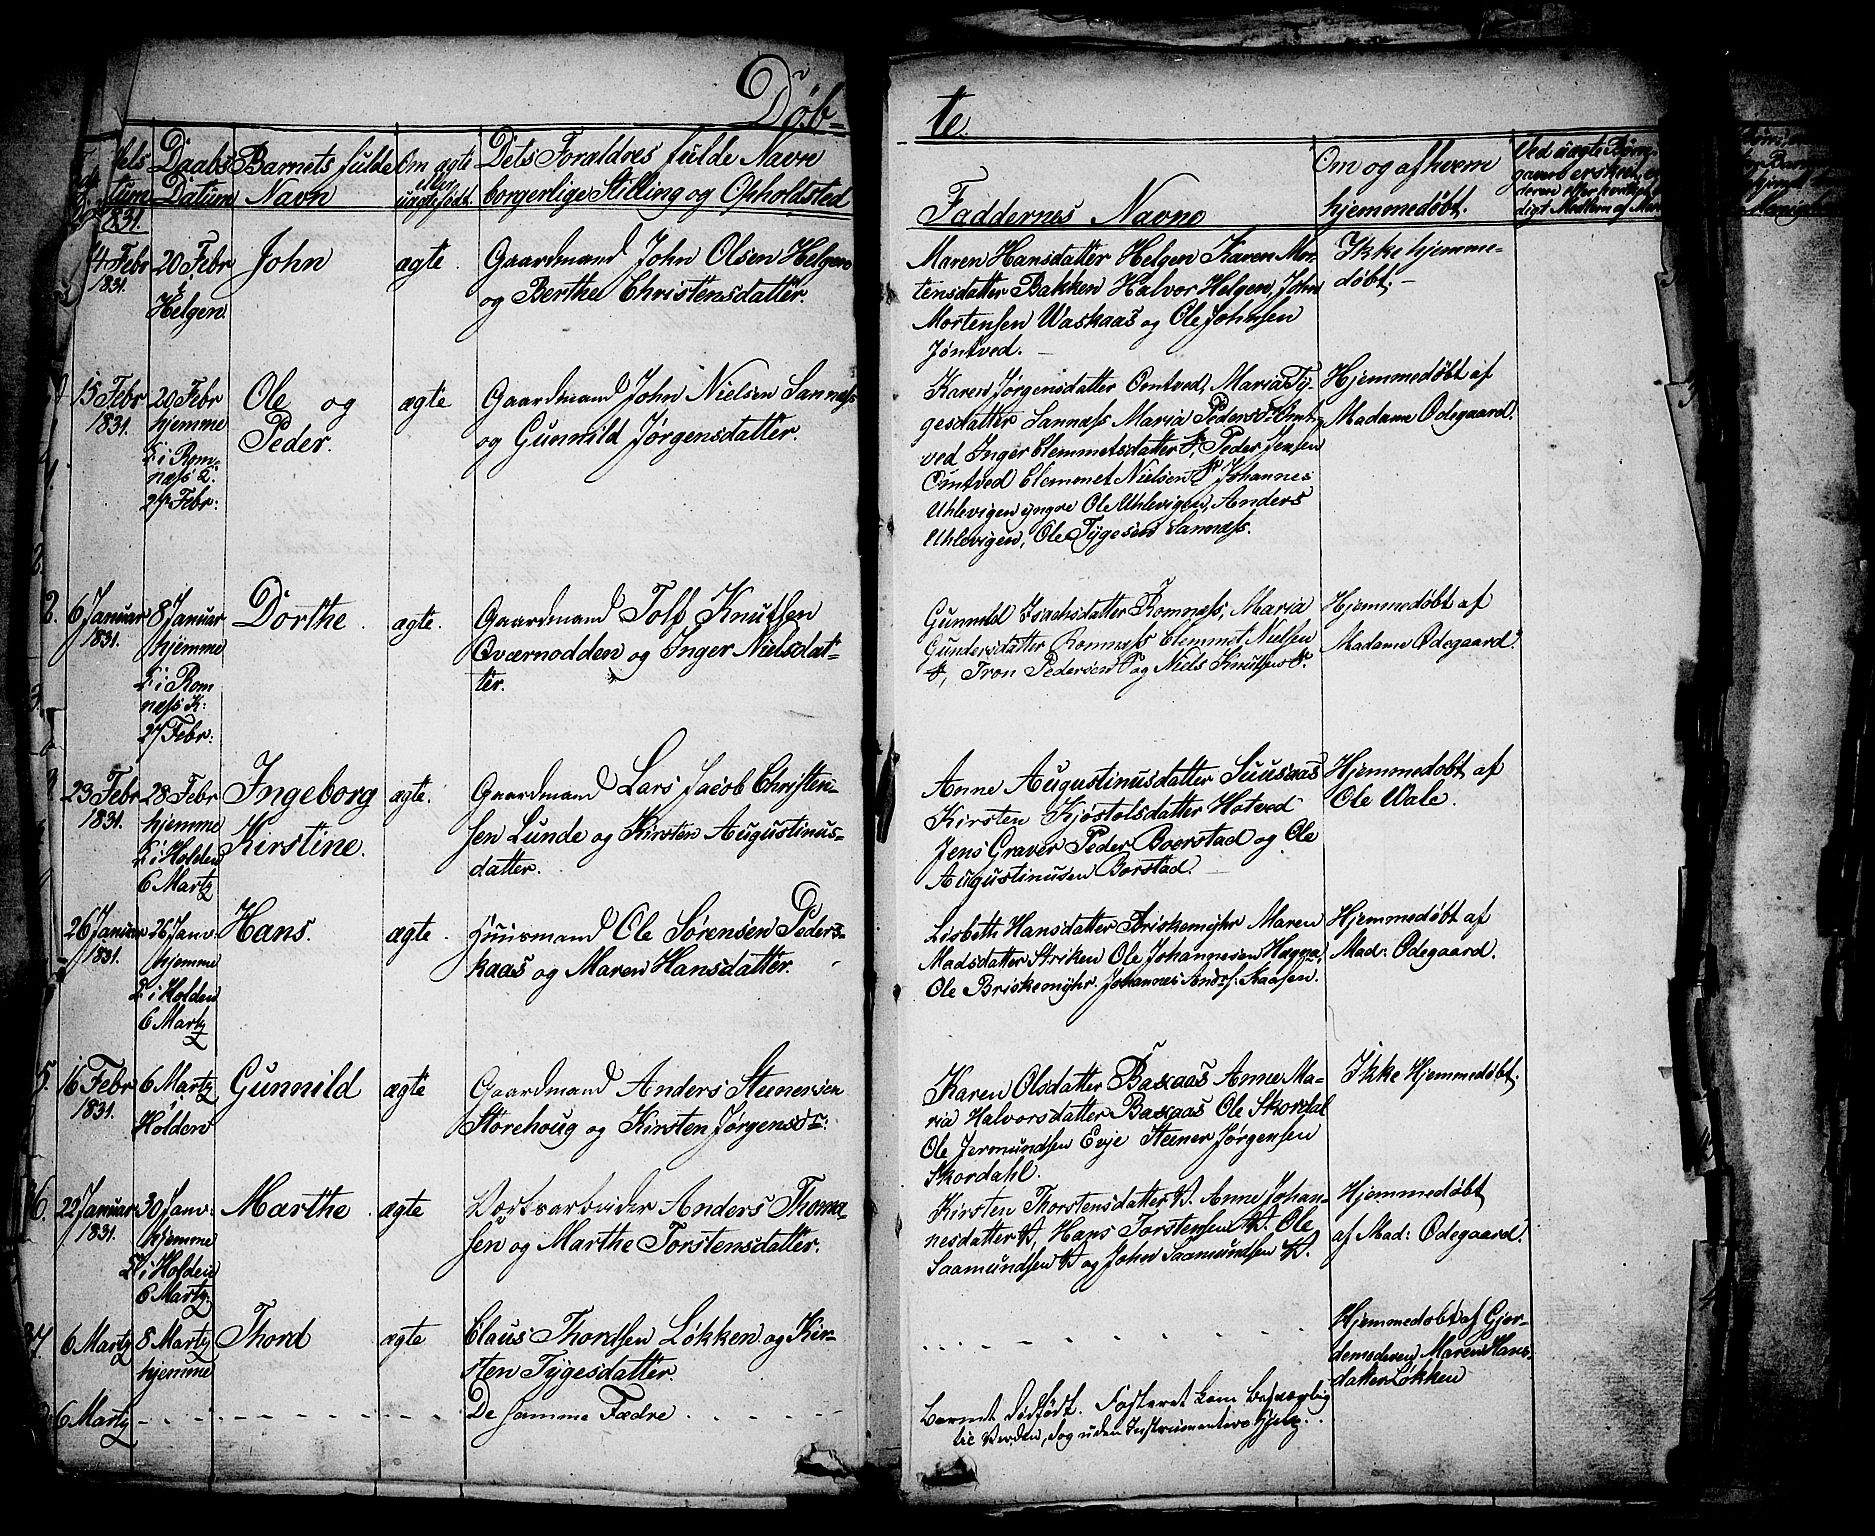 Døb-
te.
Daabs
Datum
Barnets fulde
Navn
Om ægte
eller
uægtefødt.
Dets Forældres fulde Navn
borgerlige Stilling og Opholdsted
Faddernes Navne
Om og af hvem
hjemmedøbt.
1831.
14 Febr
1831.
20 Febr
i
Helgen
John
ægte.
Gaardmand John Olsen Helgen
og Berthe Christensdatter.
Maren Hansdatter Helgen Karen Mor-
tensdatter Bakken Halvor Helgen, John
Mortensen Waskaas og Ole Johnsen
Jøntved.
Ikke hjemme-
døbt.
15 Febr
1831.
20 Febr
hjemme
& i Rom-
næss K:
27 Febr:
Ole og
Peder.
ægte
Gaardmand John Nielsen Sannæss
og Gunnild Jørgensdatter.
Karen Jørgensdatter Omtved, Maria Ty-
gesdatter Sannæss Maria Pedersdr Omt-
ved Inger Clemmetsdatter St, Peder Jensen
Omtved Clemmet Nielsen St Johannes
Uhlevigen yngre Ole Uhlevigen, Anders
Uhlevigen, Ole Tygesen Sannæss.
Hjemmedøbt af
Madame Ødegaard.
6 Januar
1831.
8 Januar
hjemme
& i Rom
næss K:
27 Febr:
Dorthe
ægte.
Gaardmand Tolf Knutsen
Qværnodden og Inger Nielsdat-
ter.
Gunnild Isachsdatter Romnæss, Maria
Gundersdatter Romnæss Clemmet Nielsen
St, Tron Pedersen St og Niels Knutsen St.
Hjemmedøbt af
Madame Ødegaard.
23 Febr
1831.
28 Febr
hjemme
& i Holden
6 Martz
Ingeborg
Kirstine.
ægte.
Gaardmand Lars Jacob Christen-
sen Lunde og Kirsten Augustinus-
datter.
Anne Augustinusdatter Suusaas
Kirsten Kjøstolsdatter Hotved
Jens Graver Peder Boerstad og Ole
Augustinusen Borstad.
Hjemmedøbt af
Ole Wale.
26 Januar
1831.
26 Janv:
hjemme
& i Holden
6 Martz
Hans.
ægte.
Huusmand Ole Sørensen Peders-
kaas og Maren Hansdatter.
Lisbeth Hansdatter Briskemyhr Maren
Madsdatter Striken Ole Johannesen Hagga,
Ole Briskemyhr. Johannes Andrs: Kaasen.
Hjemmedøbt af
Mad: Ødegaard.
5.
16 Febr
1831.
6 Martz
i
Holden
Gunnild
ægte
Gaardmand Anders Steenersen
Storehoug og Kirsten Jørgensdr:
Karen Olsdatter Baxaas Anne Ma-
ria Halvorsdatter Baxaas Ole Skordal
Ole Jermundsen Evje Steener Jørgensen
Skordahl
Ikke Hjemmedøbt.
36.
22 Januar
1831.
30 Janv:
hjemme
& i Holden
6 Martz.
Marthe
ægte
Værksarbeider Anders Thoma-
sen og Marthe Torstensdatter.
Kirsten Thorstensdatter V. Anne Johan-
nesdatter V, Hans Torstensen V. Ole
Saamundsen V og John Saamundsen V.
Hjemmedøbt
af Mad: Ødegaard.
37.
6 Martz
8 Martz
hjemme
Thord
ægte
Claus Thordsen Løkken og Kir-
sten Tygesdatter.
Hjemmedøbt af Gjor-
demoderen Maren Hans-
datter Løkken
6 Martz
De samme Fædre
Barnet dødfødt. Fosteret kom besværlig
til Verden, dog uden Instrumenters Hjelp.